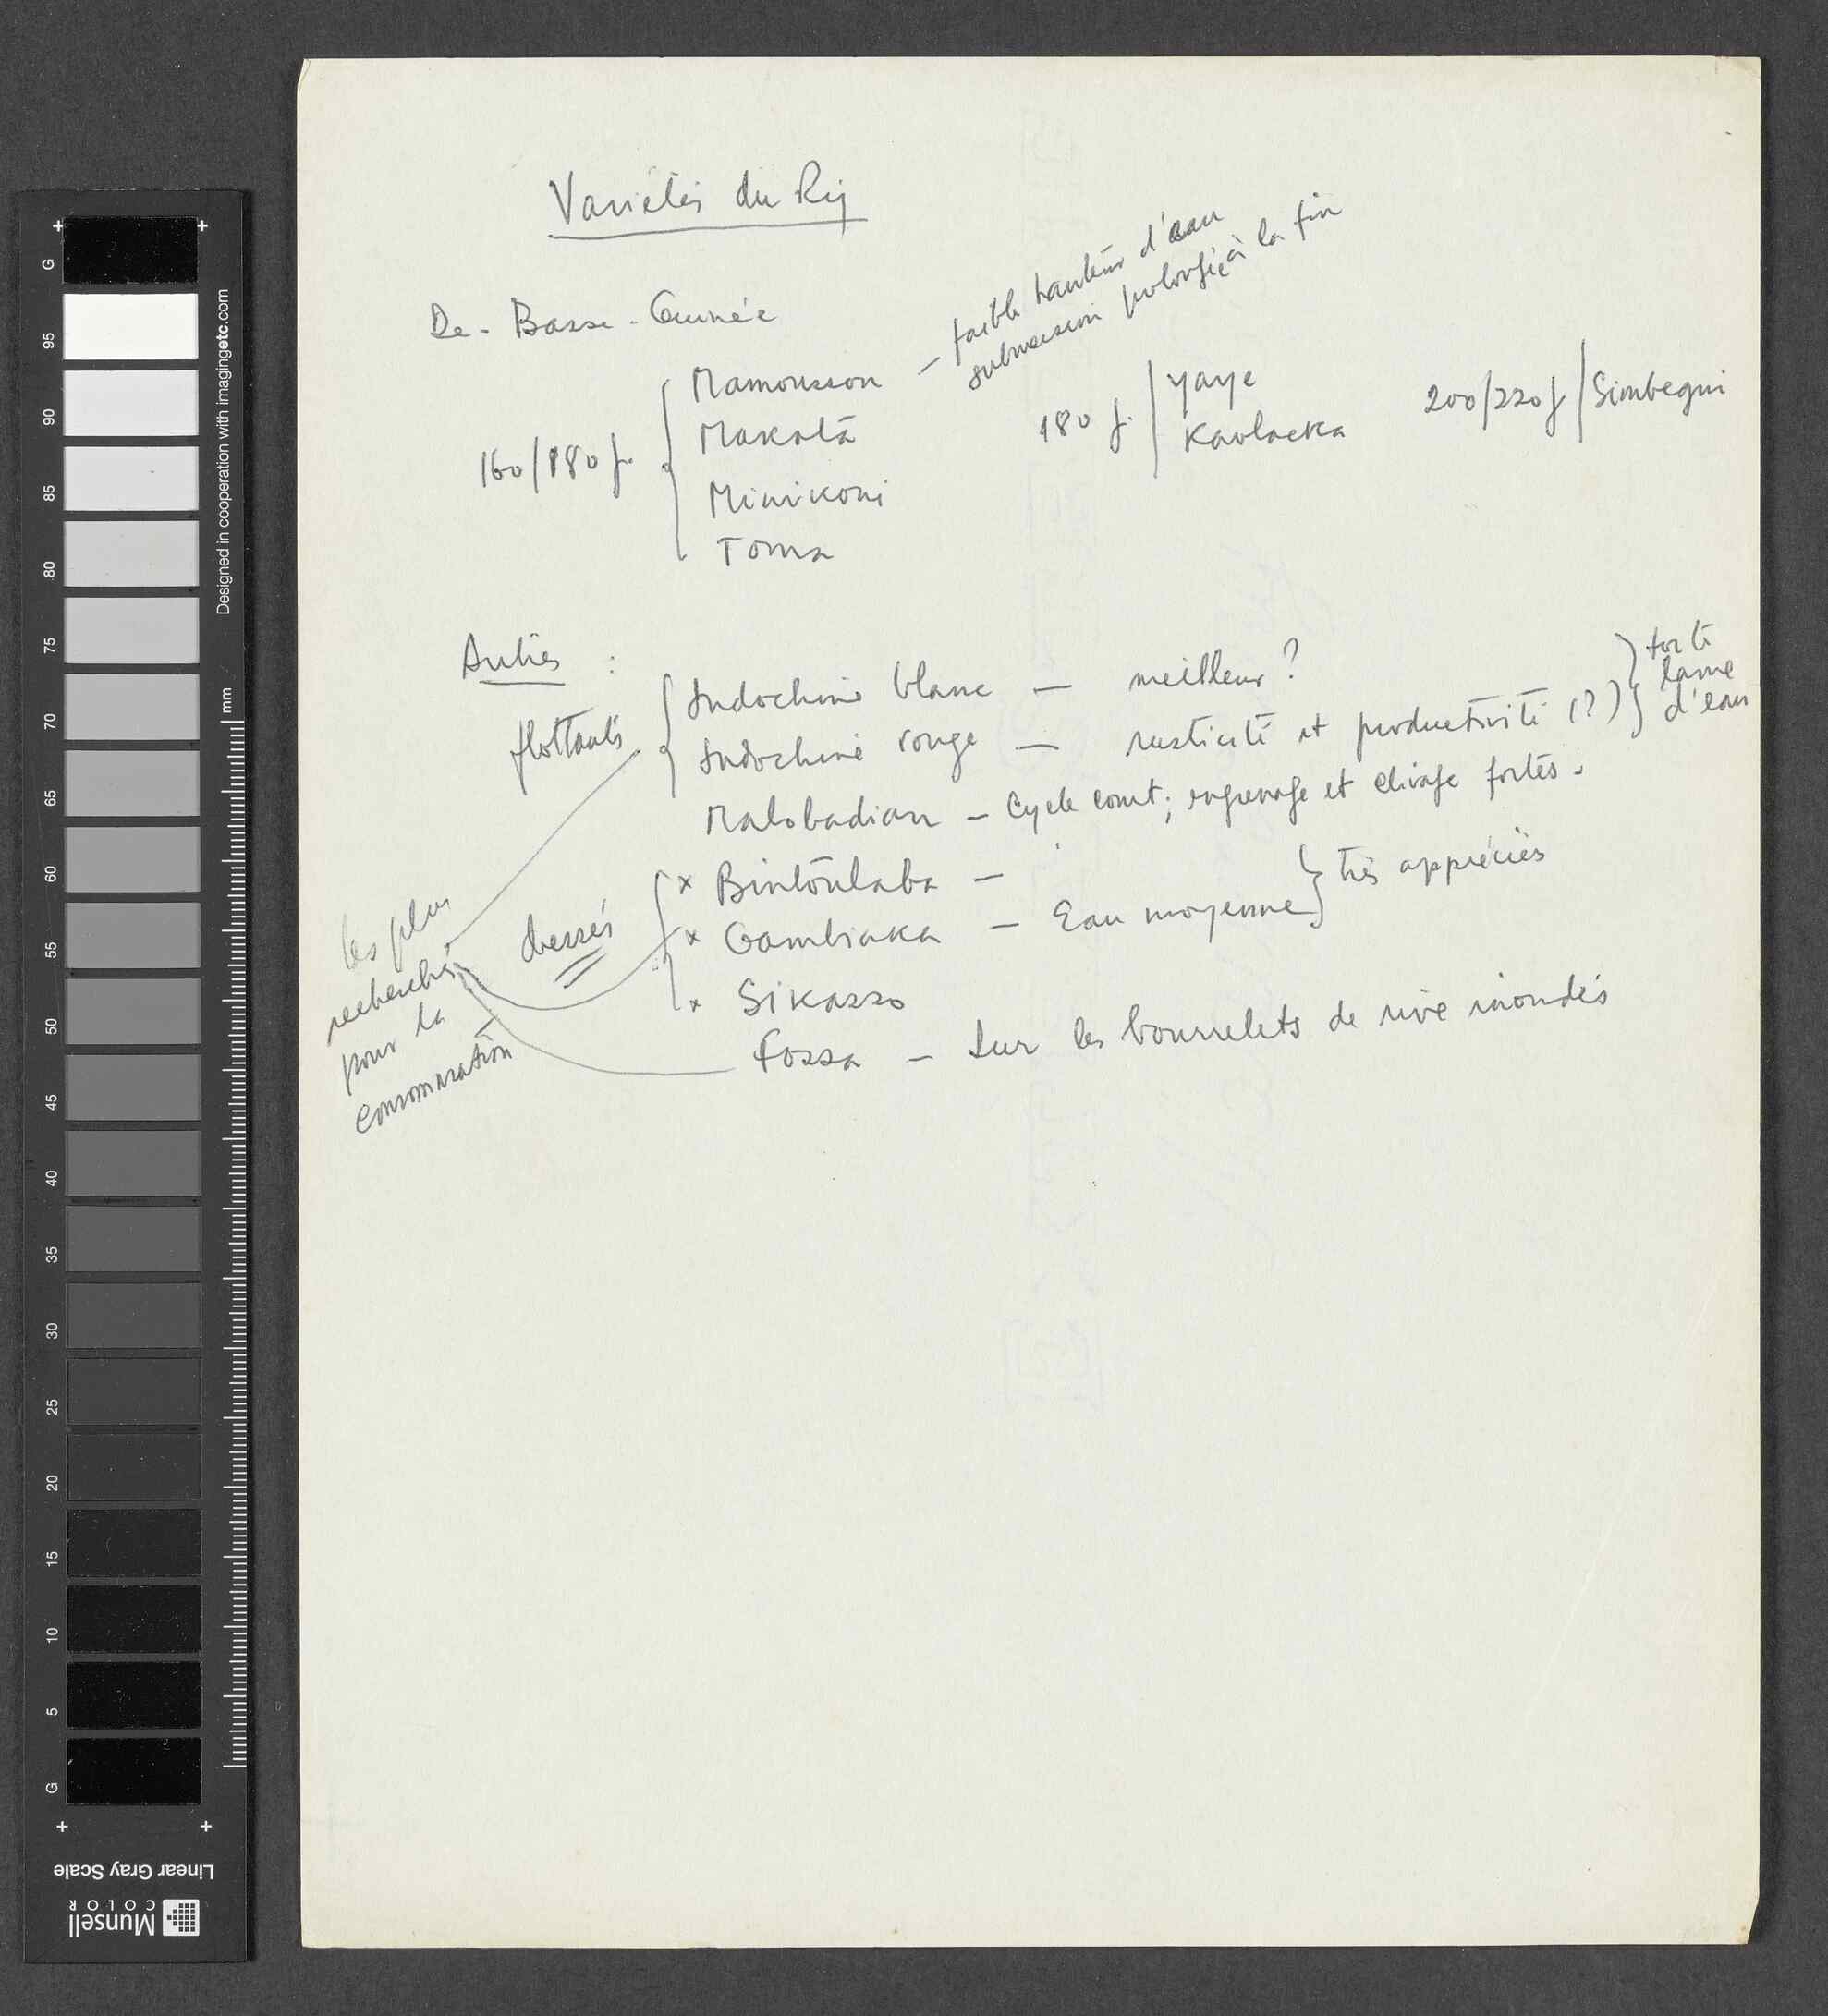 Variétés du Riz
De - Basse - Guinée
160/180 j. { Mamousson — faible hauteur d'eau
submersion prolongée à la fin
Makata
Minikoni
Toma
180 j. | Yaye
Kaolacka
200/220 j | Simbegui
Autres :
flottants { Indochine blanc — meilleur ?
Indochine rouge — rusticité et productivité (?) } forte
lame
d'eau
Malobadian — Cycle court ; egrenage et clivage fortes.
dressés { x Bintoulaba —
x Gambiaka — Eau moyenne } très appréciés
x Sikasso
Fossa — Sur les bourrelets de rive inondés
les plus
recherchés
pour la
consommation
G
95
90
85
80
75
70
65
60
55
50
45
40
35
30
25
20
15
10
5
G
mm
Designed in cooperation with imagingetc.com
Linear Gray Scale
Munsell
COLOR